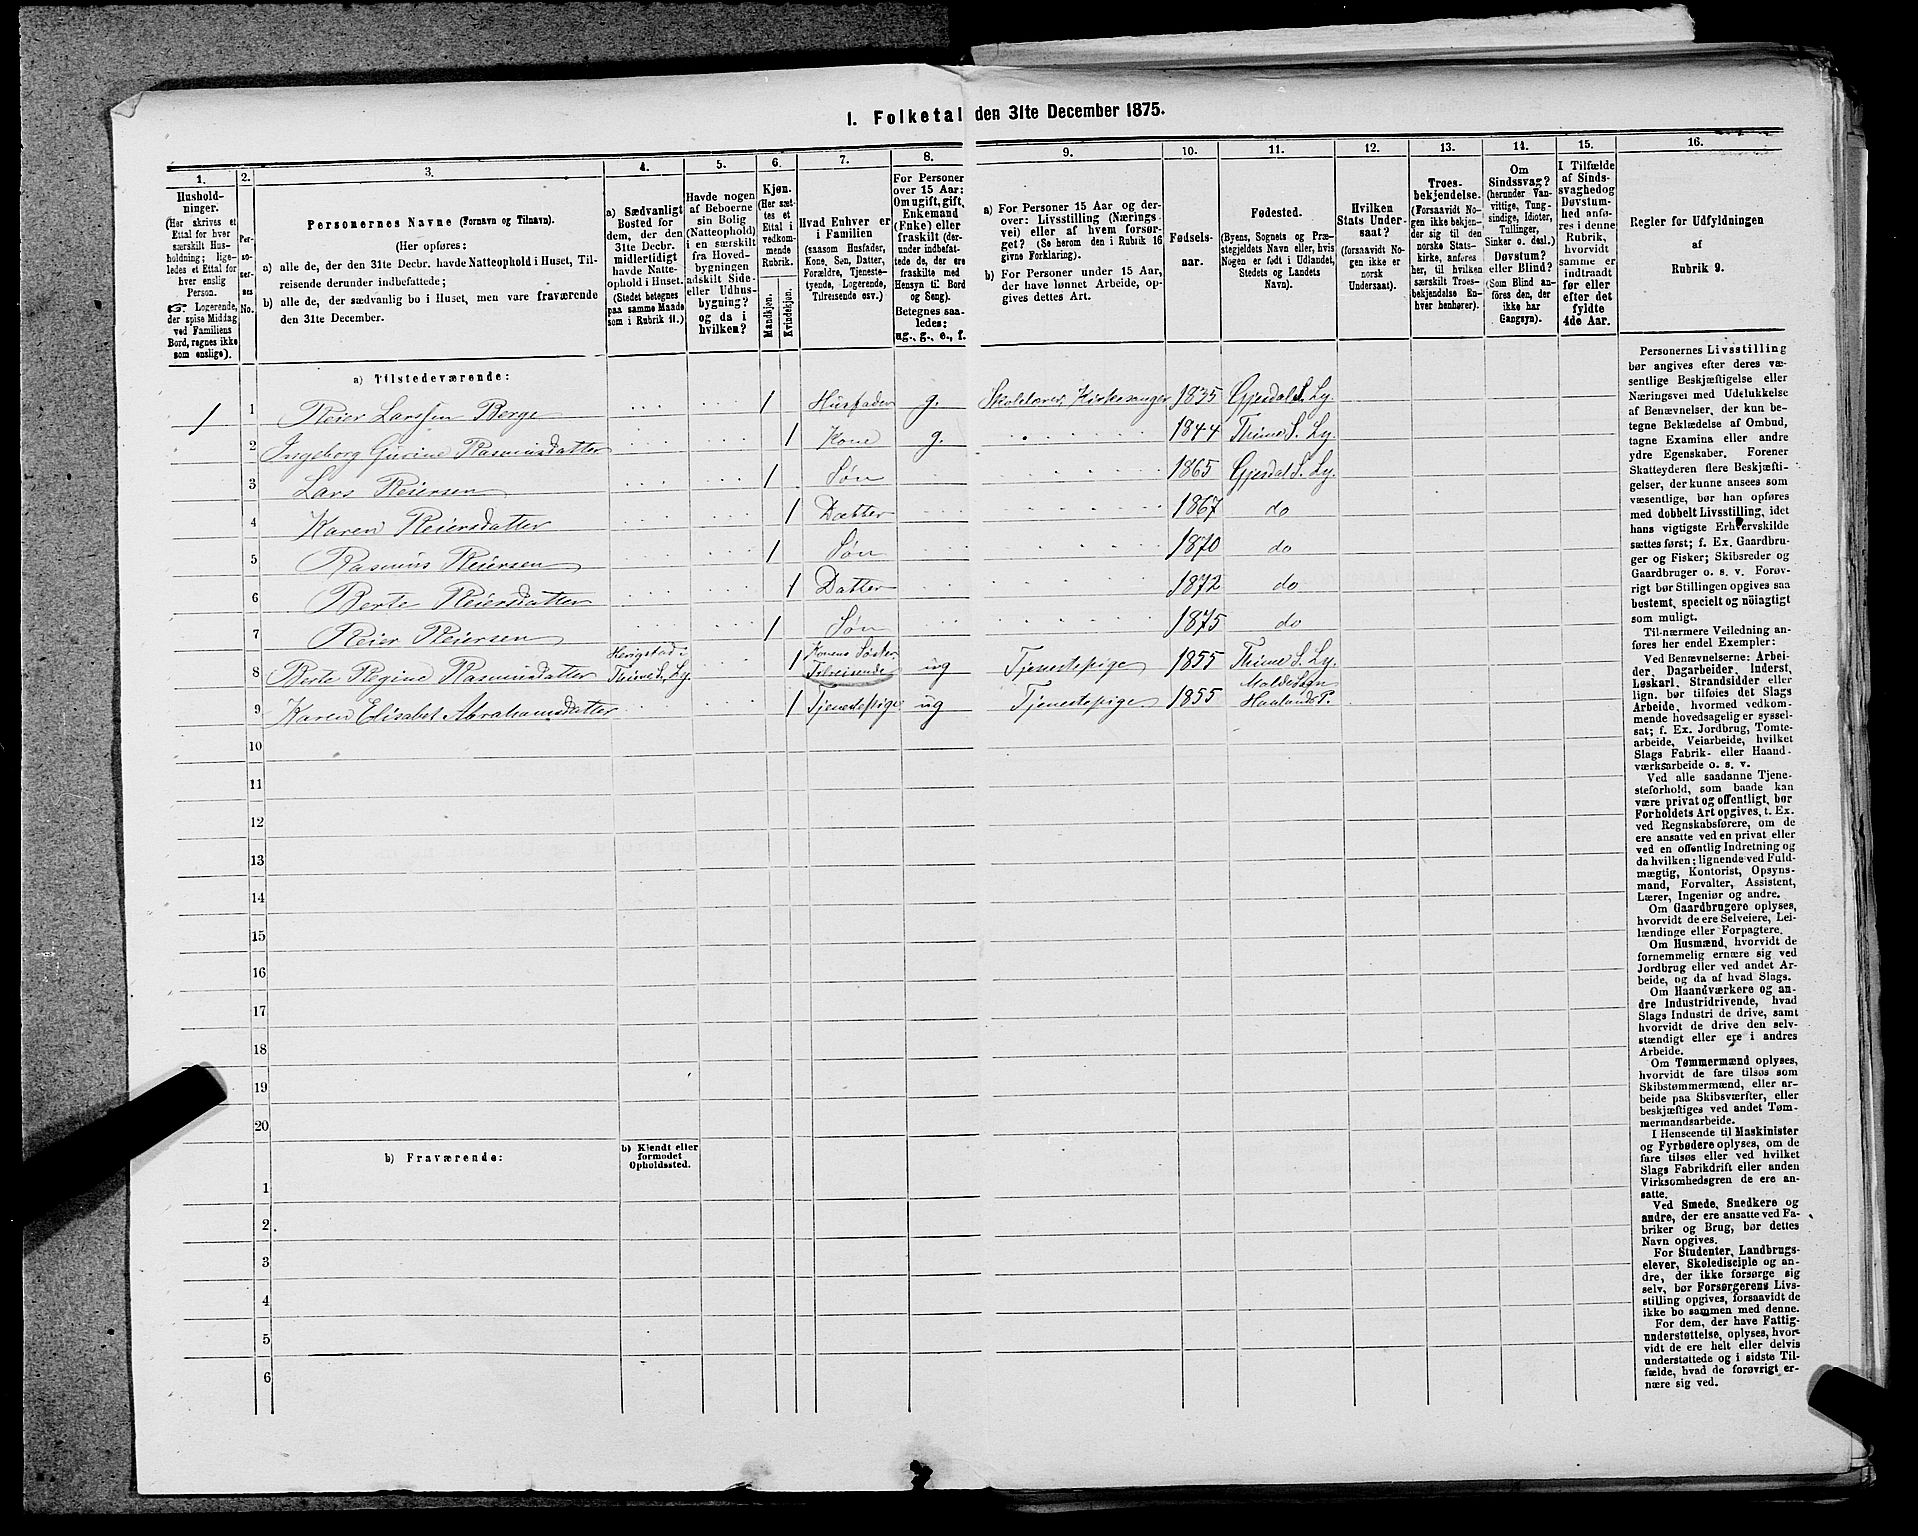 I. Folketal den 31te December 1875.
1. 2. 3. 4. 5. 6. 7. 8. 9. 10. 11. 12. 13. 14. 15. 16.
Hushold-
ninger.
(Her skrives et
Ettal for hver
særskilt Hus-
holdning; lige-
ledes et Ettal for
hver enslig
Person.
Logerende,
der spise Middag
ved Familiens
Bord, regnes ikke
som enslige).
Per-
so-
ner-
nes
No.
Personernes Navne (Fornavn og Tilnavn).
(Her opføres:
a) alle de, der den 31te Decbr. havde Natteophold i Huset, Til-
reisende derunder indbefattede;
b) alle de, der sædvanlig bo i Huset, men vare fraværende
den 31te December.
a) Sædvanligt
Bosted for
dem, der den
31te Decbr.
midlertidigt
havde Natte-
ophold i Huset.
(Stedet betegnes
paa samme Maade
som i Rubrik 11.)
Havde nogen
af Beboerne
sin Bolig
(Natteophold)
i en særskilt
fra Hoved-
bygningen
adskilt Side-
eller Udhus-
bygning?
og da i
hvilken?
Kjøn.
(Her sæt-
tes et
Ettal i
vedkom-
mende
Rubrik.
Mandkjøn.
Kvindekjøn.
Hvad Enhver er
i Familien
(saasom Husfader,
Kone, Søn, Datter,
Forældre, Tjeneste-
tyende, Logerende,
Tilreisende osv.)
For Personer
over 15 Aar:
Om ugift, gift,
Enkemand
(Enke) eller
fraskilt (der-
under indbefat-
tede de, der ere
fraskilte med
Hensyn til Bord
og Seng).
Betegnes saa-
ledes:
ug., g., e., f.
a) For Personer 15 Aar og der-
over: Livsstilling (Nærings-
vei) eller af hvem forsør-
get? (Se herom den i Rubrik 16
givne Forklaring).
b) For Personer under 15 Aar,
der have lønnet Arbeide, op-
gives dettes Art.
Fødsels-
aar.
Fødested.
(Byens, Sognets og Præ-
stegjeldets Navn eller, hvis
Nogen er født i Udlandet,
Stedets og Landets
Navn).
Hvilken
Stats Under-
saat?
(forsaavidt No-
gen ikke er
norsk
Undersaat).
Troes-
bekjendelse.
(Forsaavidt No-
gen ikke bekjen-
der sig til den
norske Stats-
kirke, anføres
her, til hvilken
særskilt Troes-
bekjendelse En-
hver henhører).
Om
Sindssvag?
(herunder Van-
vittige, Tung-
sindige, Idioter,
Tullinger,
Sinker o. desl.)
Døvstum?
eller Blind?
(Som Blind an-
føres den, der
ikke har
Gangsyn).
I Tilfælde
af Sinds-
svaghed og
Døvstum-
hed anfø-
res i denne
Rubrik,
hvorvidt
samme er
indtraadt
før eller
efter det
fyldte
4de Aar.
Regler for Udfyldningen
af
Rubrik 9.
a) Tilstedeværende:
1 1 Reier Larssen Berge 1 Husfader g. Skolelærer, Kirkesanger 1835 Gjesdal S. Ly.
2 Ingeborg Gurine Rasmusdatter 1 Kone g. 1844 Thime S. Ly.
3 Lars Reiersen 1 Søn 1865 Gjesdal S. Ly.
4 Karen Reiersdatter 1 Datter 1867 do
5 Rasmus Reiersen 1 Søn 1870 do
6 Berte Reiersdatter 1 Datter 1872 do
7 Reier Reiersen 1 Søn 1875 do
8 Berte Regine Rasmusdatter Herigstad i Thime S. Ly. 1 Konens Søster, Tilreisende ug Tjenestepige 1855 Thime S. Ly.
9 Karen Elisabet Abrahamsdatter 1 Tjenestepige ug Tjenestepige 1855 Haalands P.
10
11
12
13
14
15
16
17
18
19
20
b) Fraværende:
b) Kjendt eller
formodet
Opholdssted.
1
2
3
4
5
6
Personernes Livsstilling
bør angives efter deres væ-
sentlige Beskjæftigelse eller
Næringsvei med Udelukkelse
af Benævnelser, der kun be-
tegne Beklædelse af Ombud,
tagne Examina eller andre
ydre Egenskaber. Forener
Skatteyderen flere Beskjæfti-
gelser, der kunne ansees som
væsentlige, bør han opføres
med dobbelt Livsstilling, idet
hans vigtigste Erhvervskilde
sættes først; f. Ex. Gaardbru-
ger og Fisker; Skibsreder og
Gaardbruger o. s. v. Forøv-
rigt bør Stillingen opgives saa
bestemt, specielt og nöiagtigt
som muligt.
Til nærmere Veiledning an-
føres her endel Exempler:
Ved Benævnelserne: Arbei-
der, Dagarbeider, Inderst,
Løskarl, Strandsidder eller
lign. bør tilføies det Slags
Arbeide, hvormed vedkom-
mende hovedsagelig er syssel-
sat; f. Ex. Jordbrug, Tomte-
arbeide, Veiarbeide, hvilket
Slags Fabrik- eller Haand-
værksarbeide o. s. v.
Ved alle saadanne Tjene-
steforhold, som baade kan
være privat og offentligt, bør
Forholdets Art opgives, t. Ex.
ved Regnskabsførere, om de
ere ansatte ved en privat eller
ved en offentlig Indretning og
da hvilken; lignende ved Fuld-
mægtig, Kontorist, Opsyns-
mand, Forvalter, Assistent,
Lærer, Ingeniør og andre.
Om Gaardbrugere oplyses,
hvorvidt de ere Selveiere, Lei-
lændinge eller Forpagtere.
Om Husmænd, hvorvidt de
fornemmelig ernære sig ved
Jordbrug eller ved andet Ar-
beide, og da af hvad Slags.
Om Haandværkere og an-
dre Industridrivende, hvad
Slags Industri de drive, samt
hvorvidt de drive den selv-
stændigt eller ere i andres
Arbeide.
Om Tømmermænd oplyses,
hvorvidt de fare tilsøs som
Skibstømmermænd, eller ar-
beide paa Skibsværfter, eller
beskjæftiges ved andet Tøm-
mermandsarbeide.
I Henseende til Maskinister
og Fyrbødere oplyses, om de
fare tilsøs eller ved hvilket
Slags Fabrikdrift eller anden
Virksomhedsgren de ere an-
satte.
Ved Smede, Snedkere og
andre, der ere ansatte ved Fa-
briker og Brug, bør dettes
Navn opgives.
For Studenter, Landbrugs-
elever, Skoledisciple og an-
dre, der ikke forsørge sig
selv, bør Forsørgerens Livs-
stilling opgives, forsaavidt de
ikke bo sammen med denne.
For dem, der have Fattig-
understøttelse, oplyses, hvor-
vidt de ere helt eller delvis
understøttede og i sidste Til-
fælde, hvad de forøvrigt er-
nære sig ved.